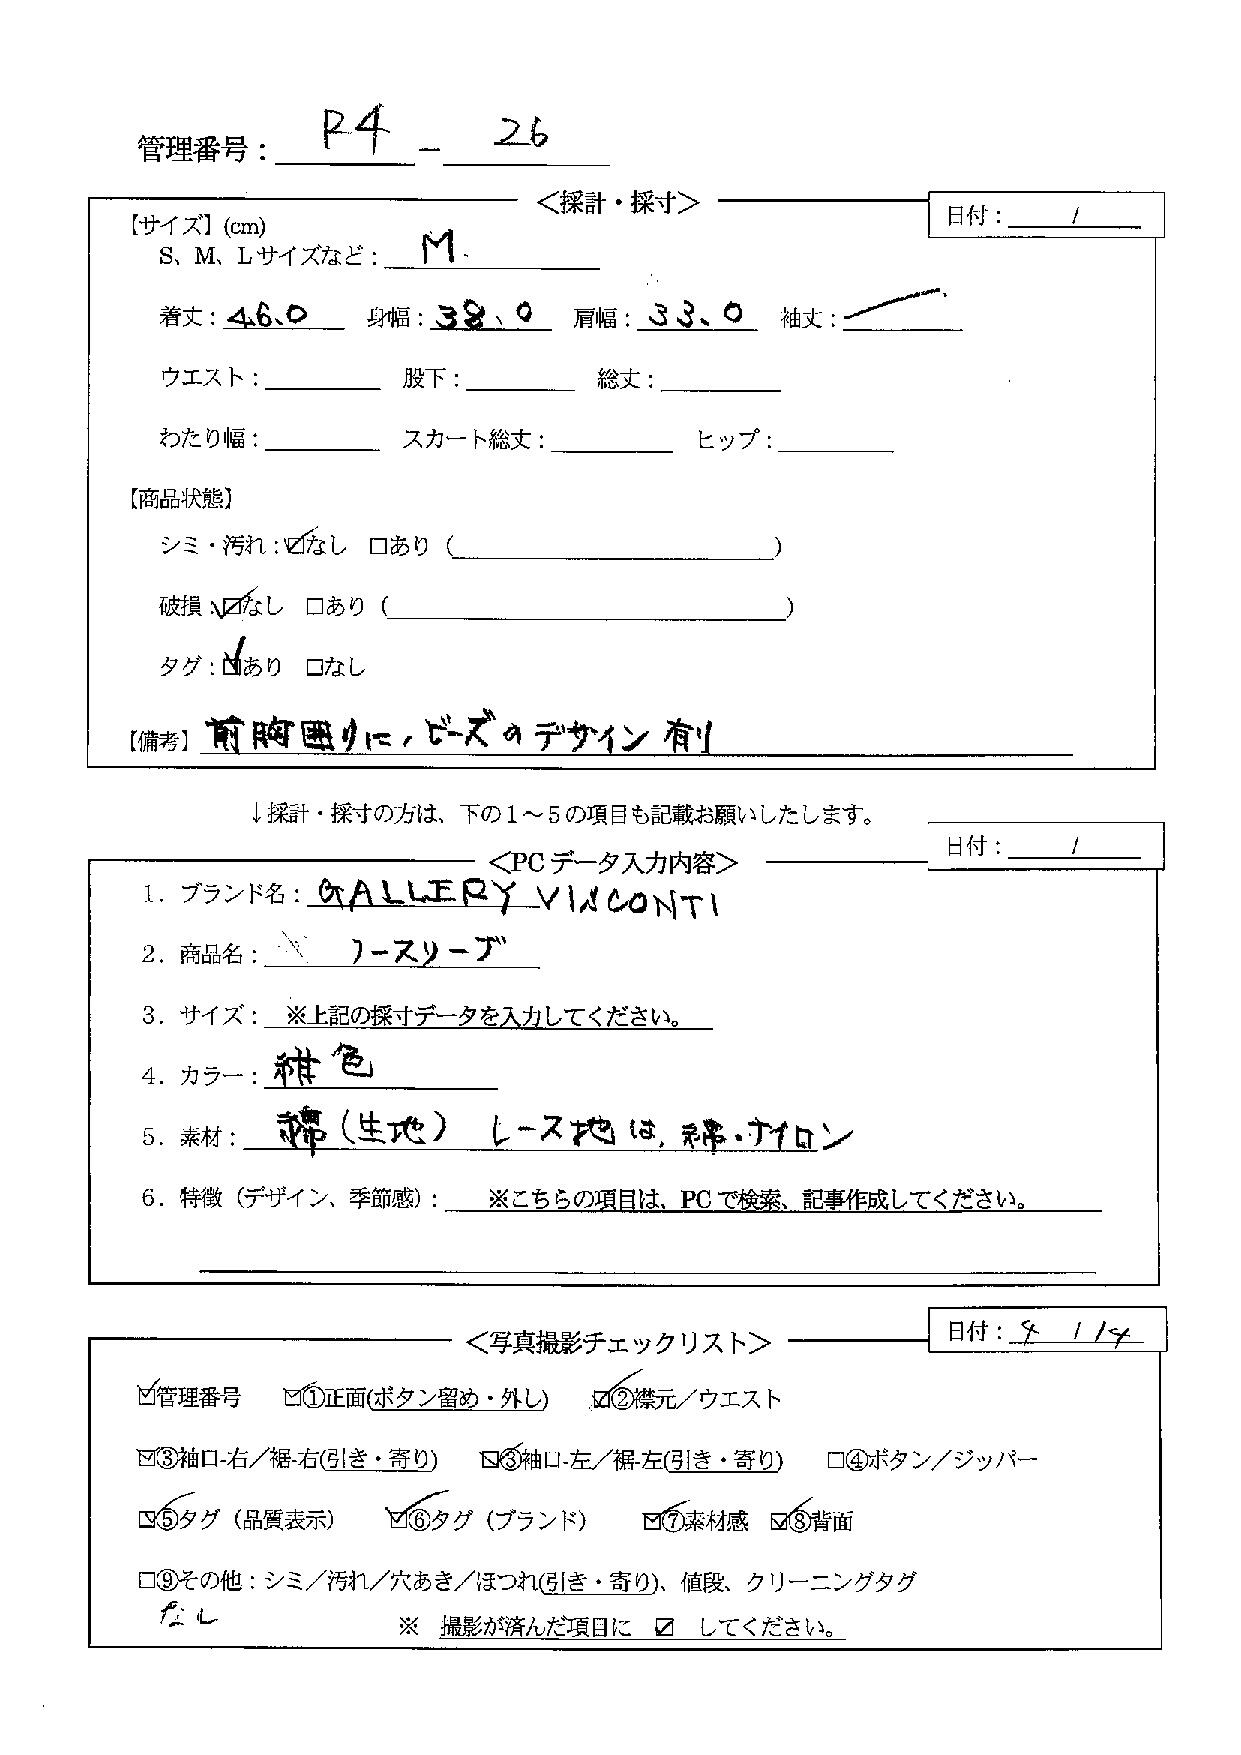 管理番号： R4 － 26
＜採計・採寸＞
日付： /
【サイズ】(cm)
S、M、Lサイズなど： M
着丈：46.0 身幅：38.0 肩幅：33.0 袖丈：
ウエスト： 股下： 総丈：
わたり幅： スカート総丈： ヒップ：
【商品状態】
シミ・汚れ：☑なし □あり（ ）
破損：☑なし □あり（ ）
タグ：☑あり □なし
【備考】前胸囲りに，ビーズのデザイン有り
↓採計・採寸の方は、下の１～５の項目も記載お願いいたします。
日付： /
＜PCデータ入力内容＞
1．ブランド名：GALLERY VISCONTI
2．商品名： ノースリーブ
3．サイズ： ※上記の採寸データを入力してください。
4．カラー：紺色
5．素材： 綿（生地） レース地は，綿・ナイロン
6．特徴（デザイン、季節感）： ※こちらの項目は、PCで検索、記事作成してください。
日付：4 / 14
＜写真撮影チェックリスト＞
☑管理番号 ☑①正面(ボタン留め・外し) ☑②襟元／ウエスト
☑③袖口-右／裾-右(引き・寄り) ☑③袖口-左／裾-左(引き・寄り) □④ボタン／ジッパー
☑⑤タグ（品質表示） ☑⑥タグ（ブランド） ☑⑦素材感 ☑⑧背面
□⑨その他：シミ／汚れ／穴あき／ほつれ(引き・寄り)、値段、クリーニングタグ
なし
※ 撮影が済んだ項目に ☑ してください。